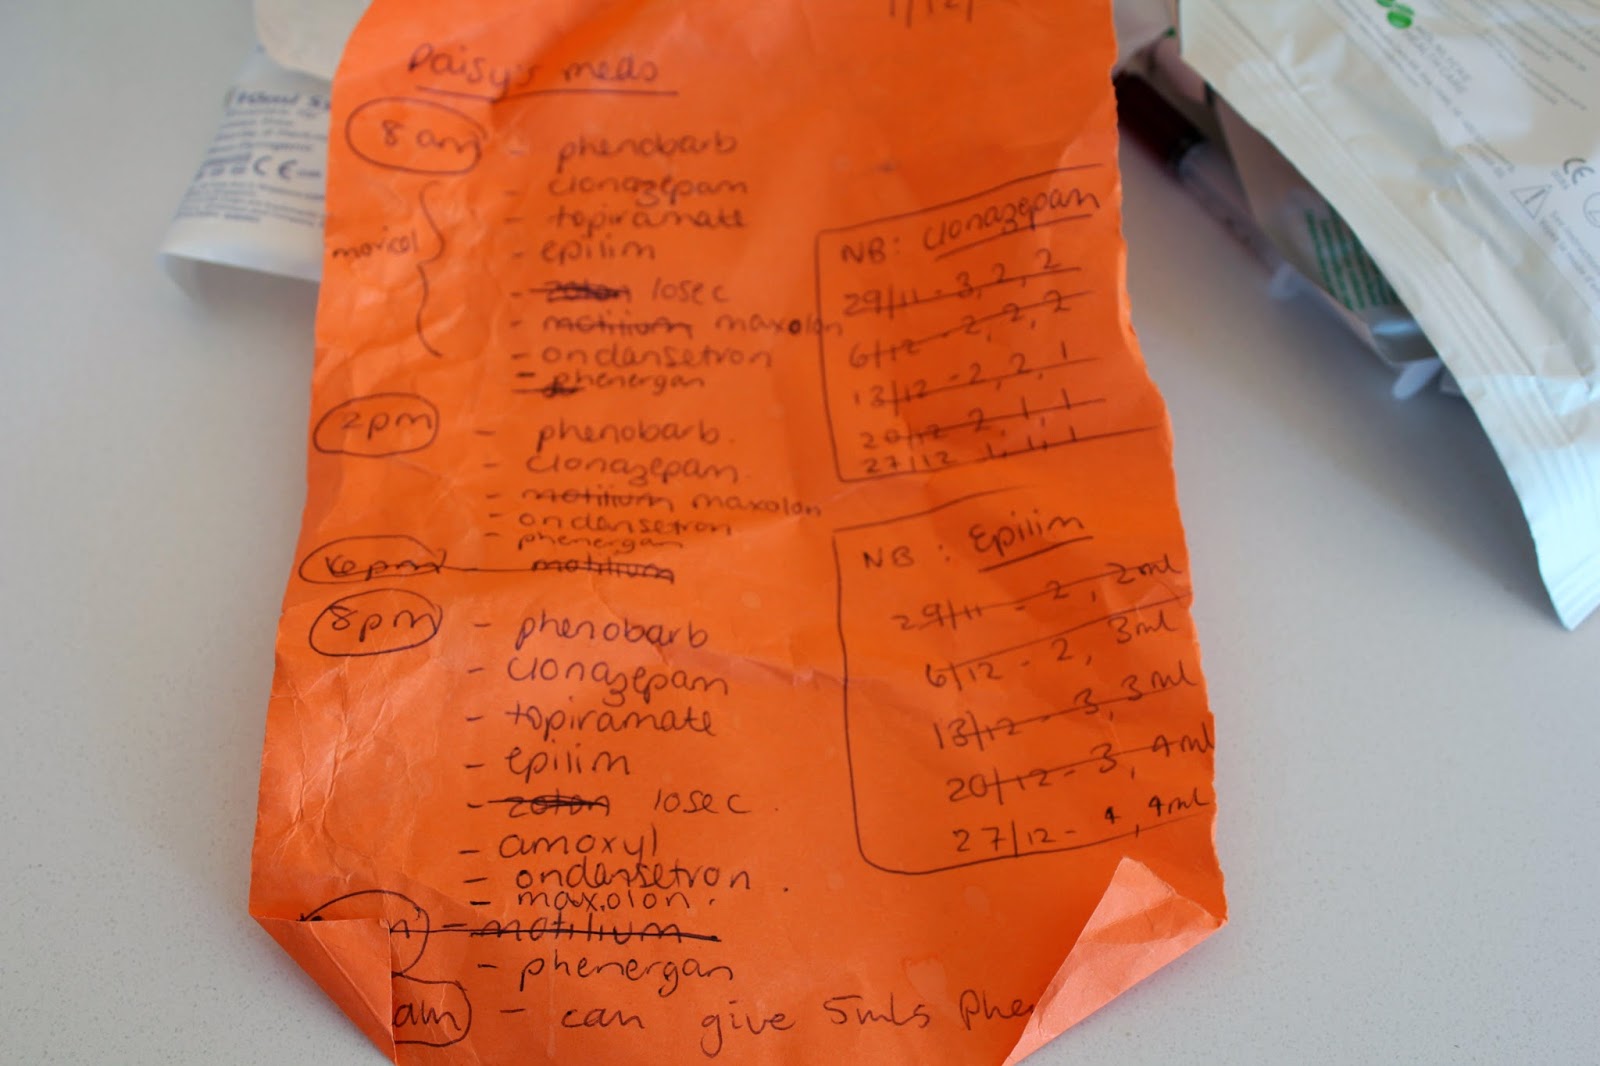 1/12/
Daisy's meds
8 am - phenobarb
- clonazepam
- topiramate
movicol
- epilim
- zoton losec
- motilium maxolon
- ondansetron
- phenergan
2pm - phenobarb.
- clonazepam.
- motilium maxolon
- ondansetron
- phenergan
6pm - motilium
8pm - phenobarb
- clonazepam
- topiramate
- epilim
- zoton losec.
- amoxyl
- ondansetron.
- maxolon.
- motilium
- phenergan
am - can give 5mls Phe
NB: Clonazepam
29/11 - 3, 2, 2
6/12 - 2, 2, 2
13/12 - 2, 2, 1
20/12 2, 1, 1
27/12 1, 1, 1
NB: Epilim
29/11 - 2, 2ml
6/12 - 2, 3ml
13/12 - 3, 3ml
20/12 - 3, 4ml
27/12 - 4, 4ml
CE
CE